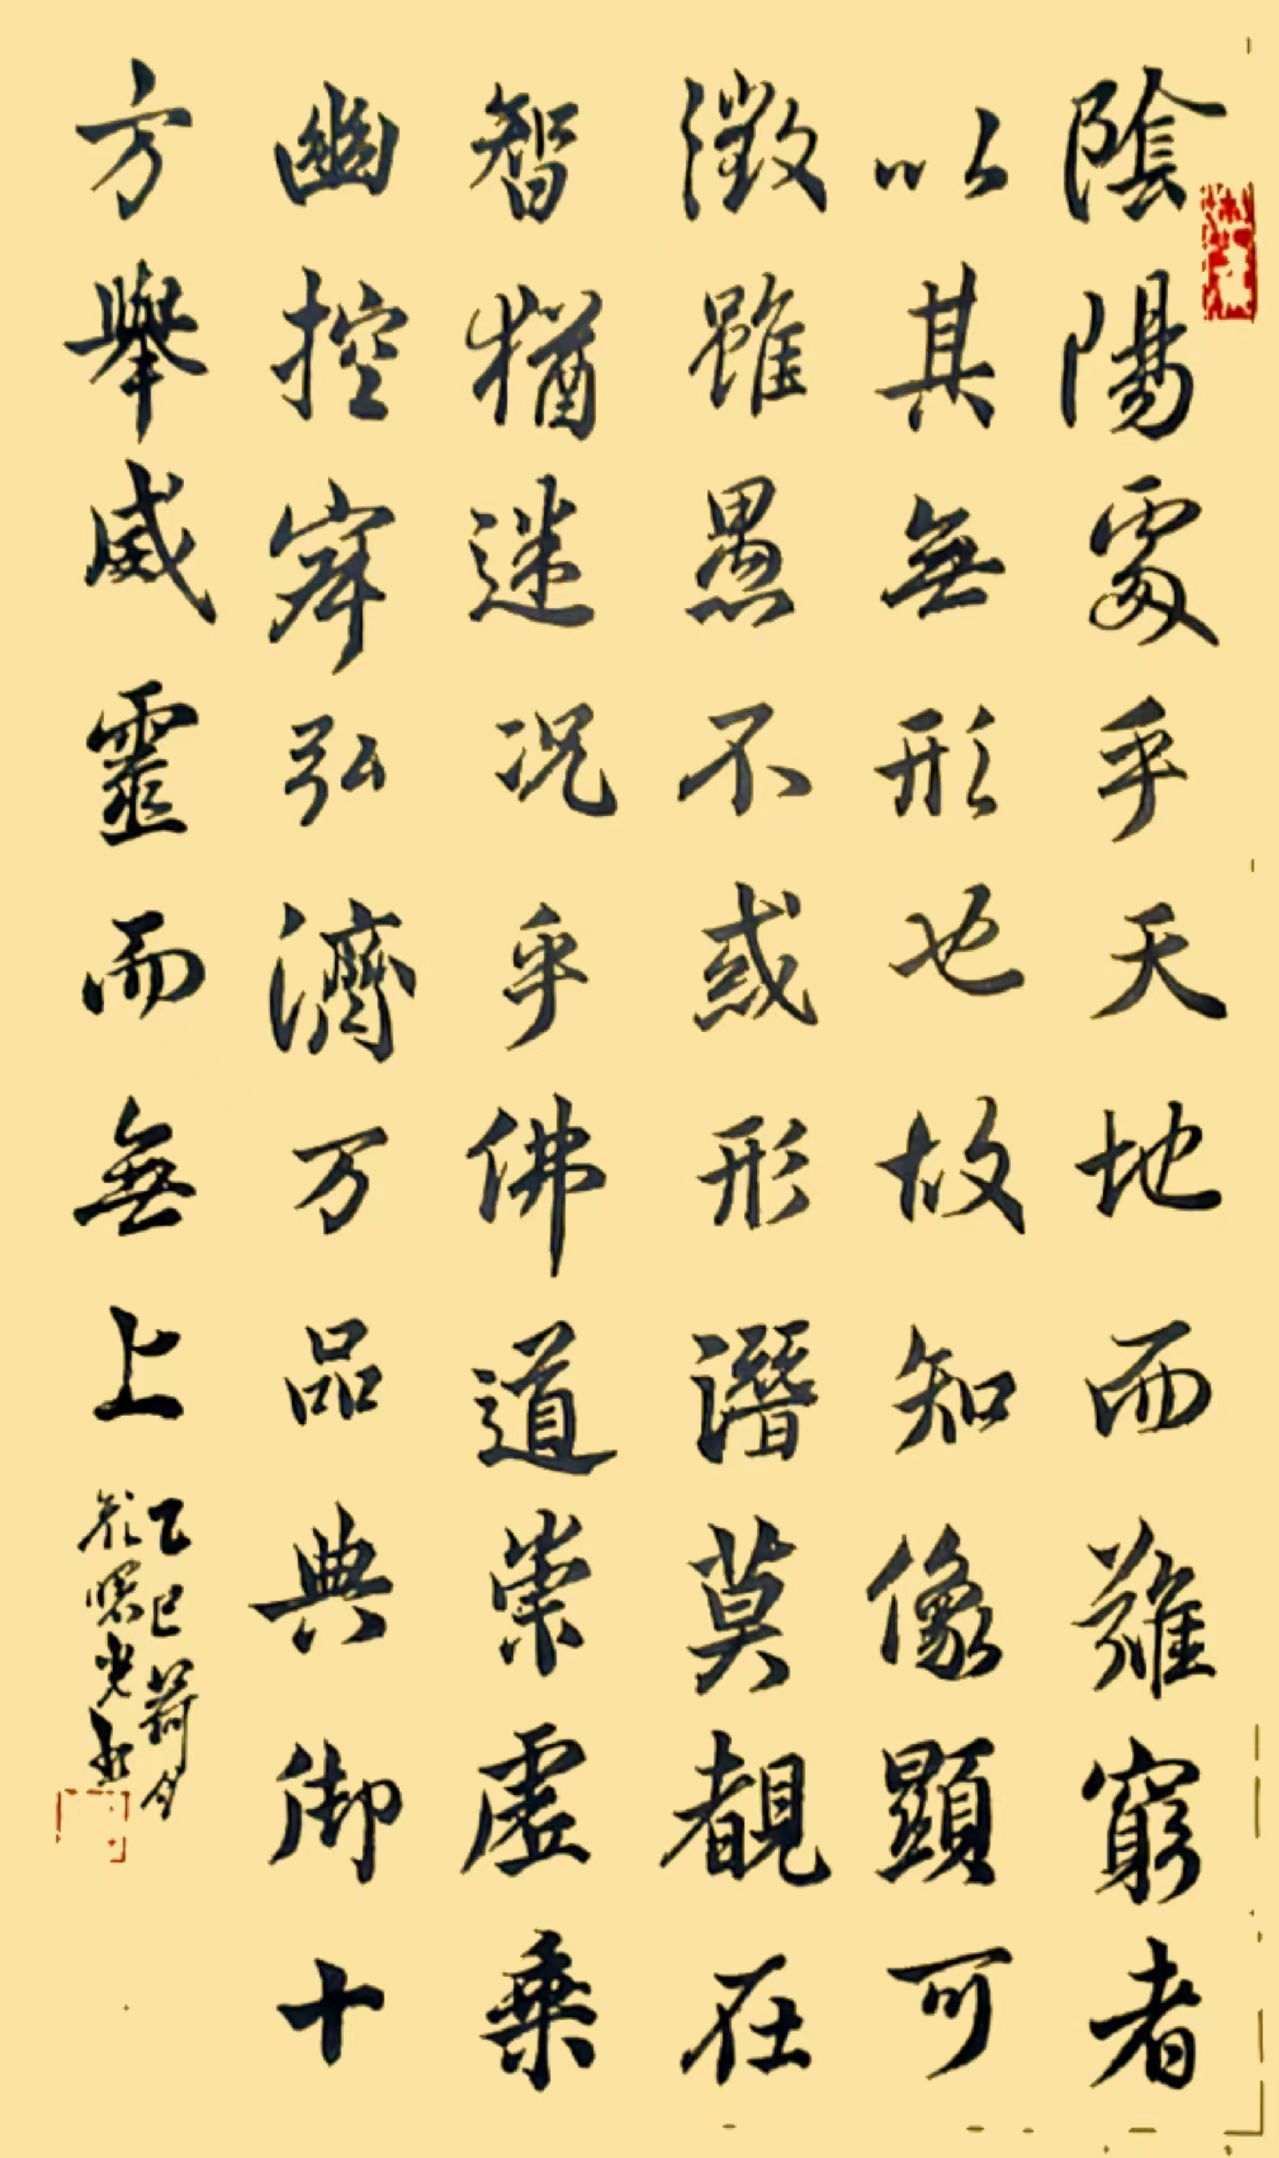 陰陽處乎天地而難窮者
以其無形也故知像顯可
徵雖愚不惑形潛莫覩在
智猶迷況乎佛道崇虛乗
幽控寂弘濟万品典御十
方舉威靈而無上
乙巳荷月